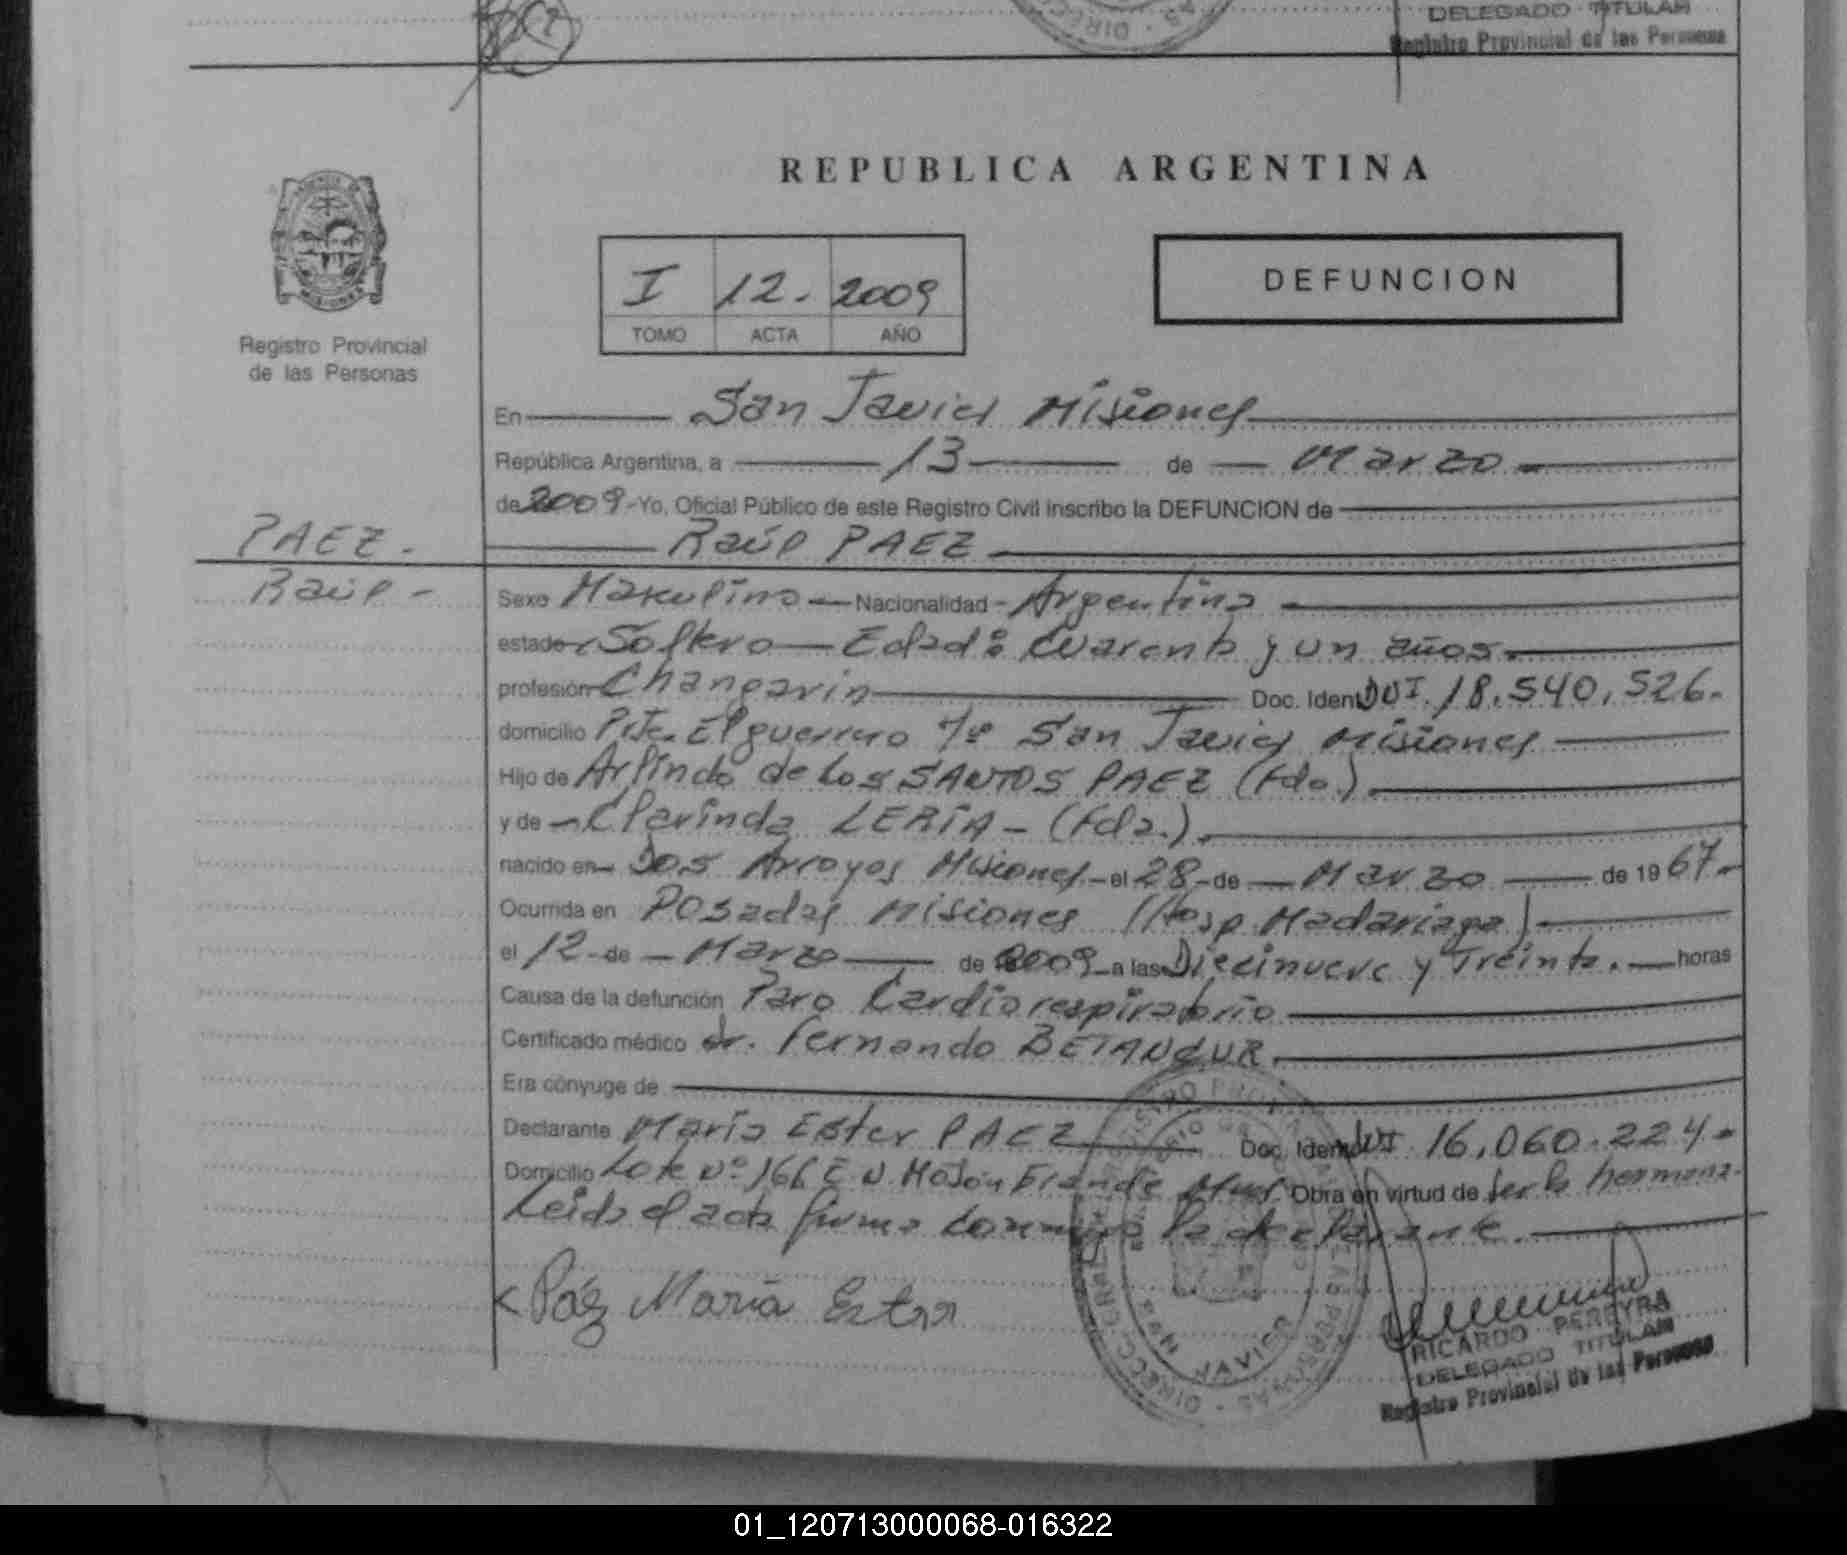 DELEGADO TITULAR
Registro Provincial de las Personas
REPUBLICA ARGENTINA
I 12. 2009
TOMO ACTA AÑO
DEFUNCION
PROVINCIA DE
MISIONES
Registro Provincial
de las Personas
En San Javier Misiones
República Argentina, a 13 de Marzo
de 2009 - Yo, Oficial Público de este Registro Civil inscribo la DEFUNCION de
PAEZ.
Raúl PAEZ
Raúl -
Sexo Masculino Nacionalidad - Argentina
estado Soltero Edad: Cuarenta y un años.
profesión Changarin Doc. Ident. DNI. 18.540.526.
domicilio Pje. El guerrero 7º San Javier Misiones
Hijo de Arlindo de Los SANTOS PAEZ (fdo.)
y de Clarinda LERIA - (fda.).
nacido en Dos Arroyos Misiones - el 28 - de Marzo de 1967.
Ocurrida en Posadas Misiones (Hosp. Madariaga)
el 12 - de Marzo de 2009 a las Diecinueve y Treinta. horas
Causa de la defunción Paro Cardiorespiratorio
Certificado médico dr. Fernando BETANCUR.
Era cónyuge de
Declarante María Ester PAEZ Doc. Ident. DNI 16.060.224.
Domicilio Lote Nº 166 Mojón Grande Mnes. Obra en virtud de ser la hermana.
Leida el acta firma conmigo la declarante.
Páez María Ester
RICARDO PEREYRA
DELEGADO TITULAR
Registro Provincial de las Personas
01_120713000068-016322